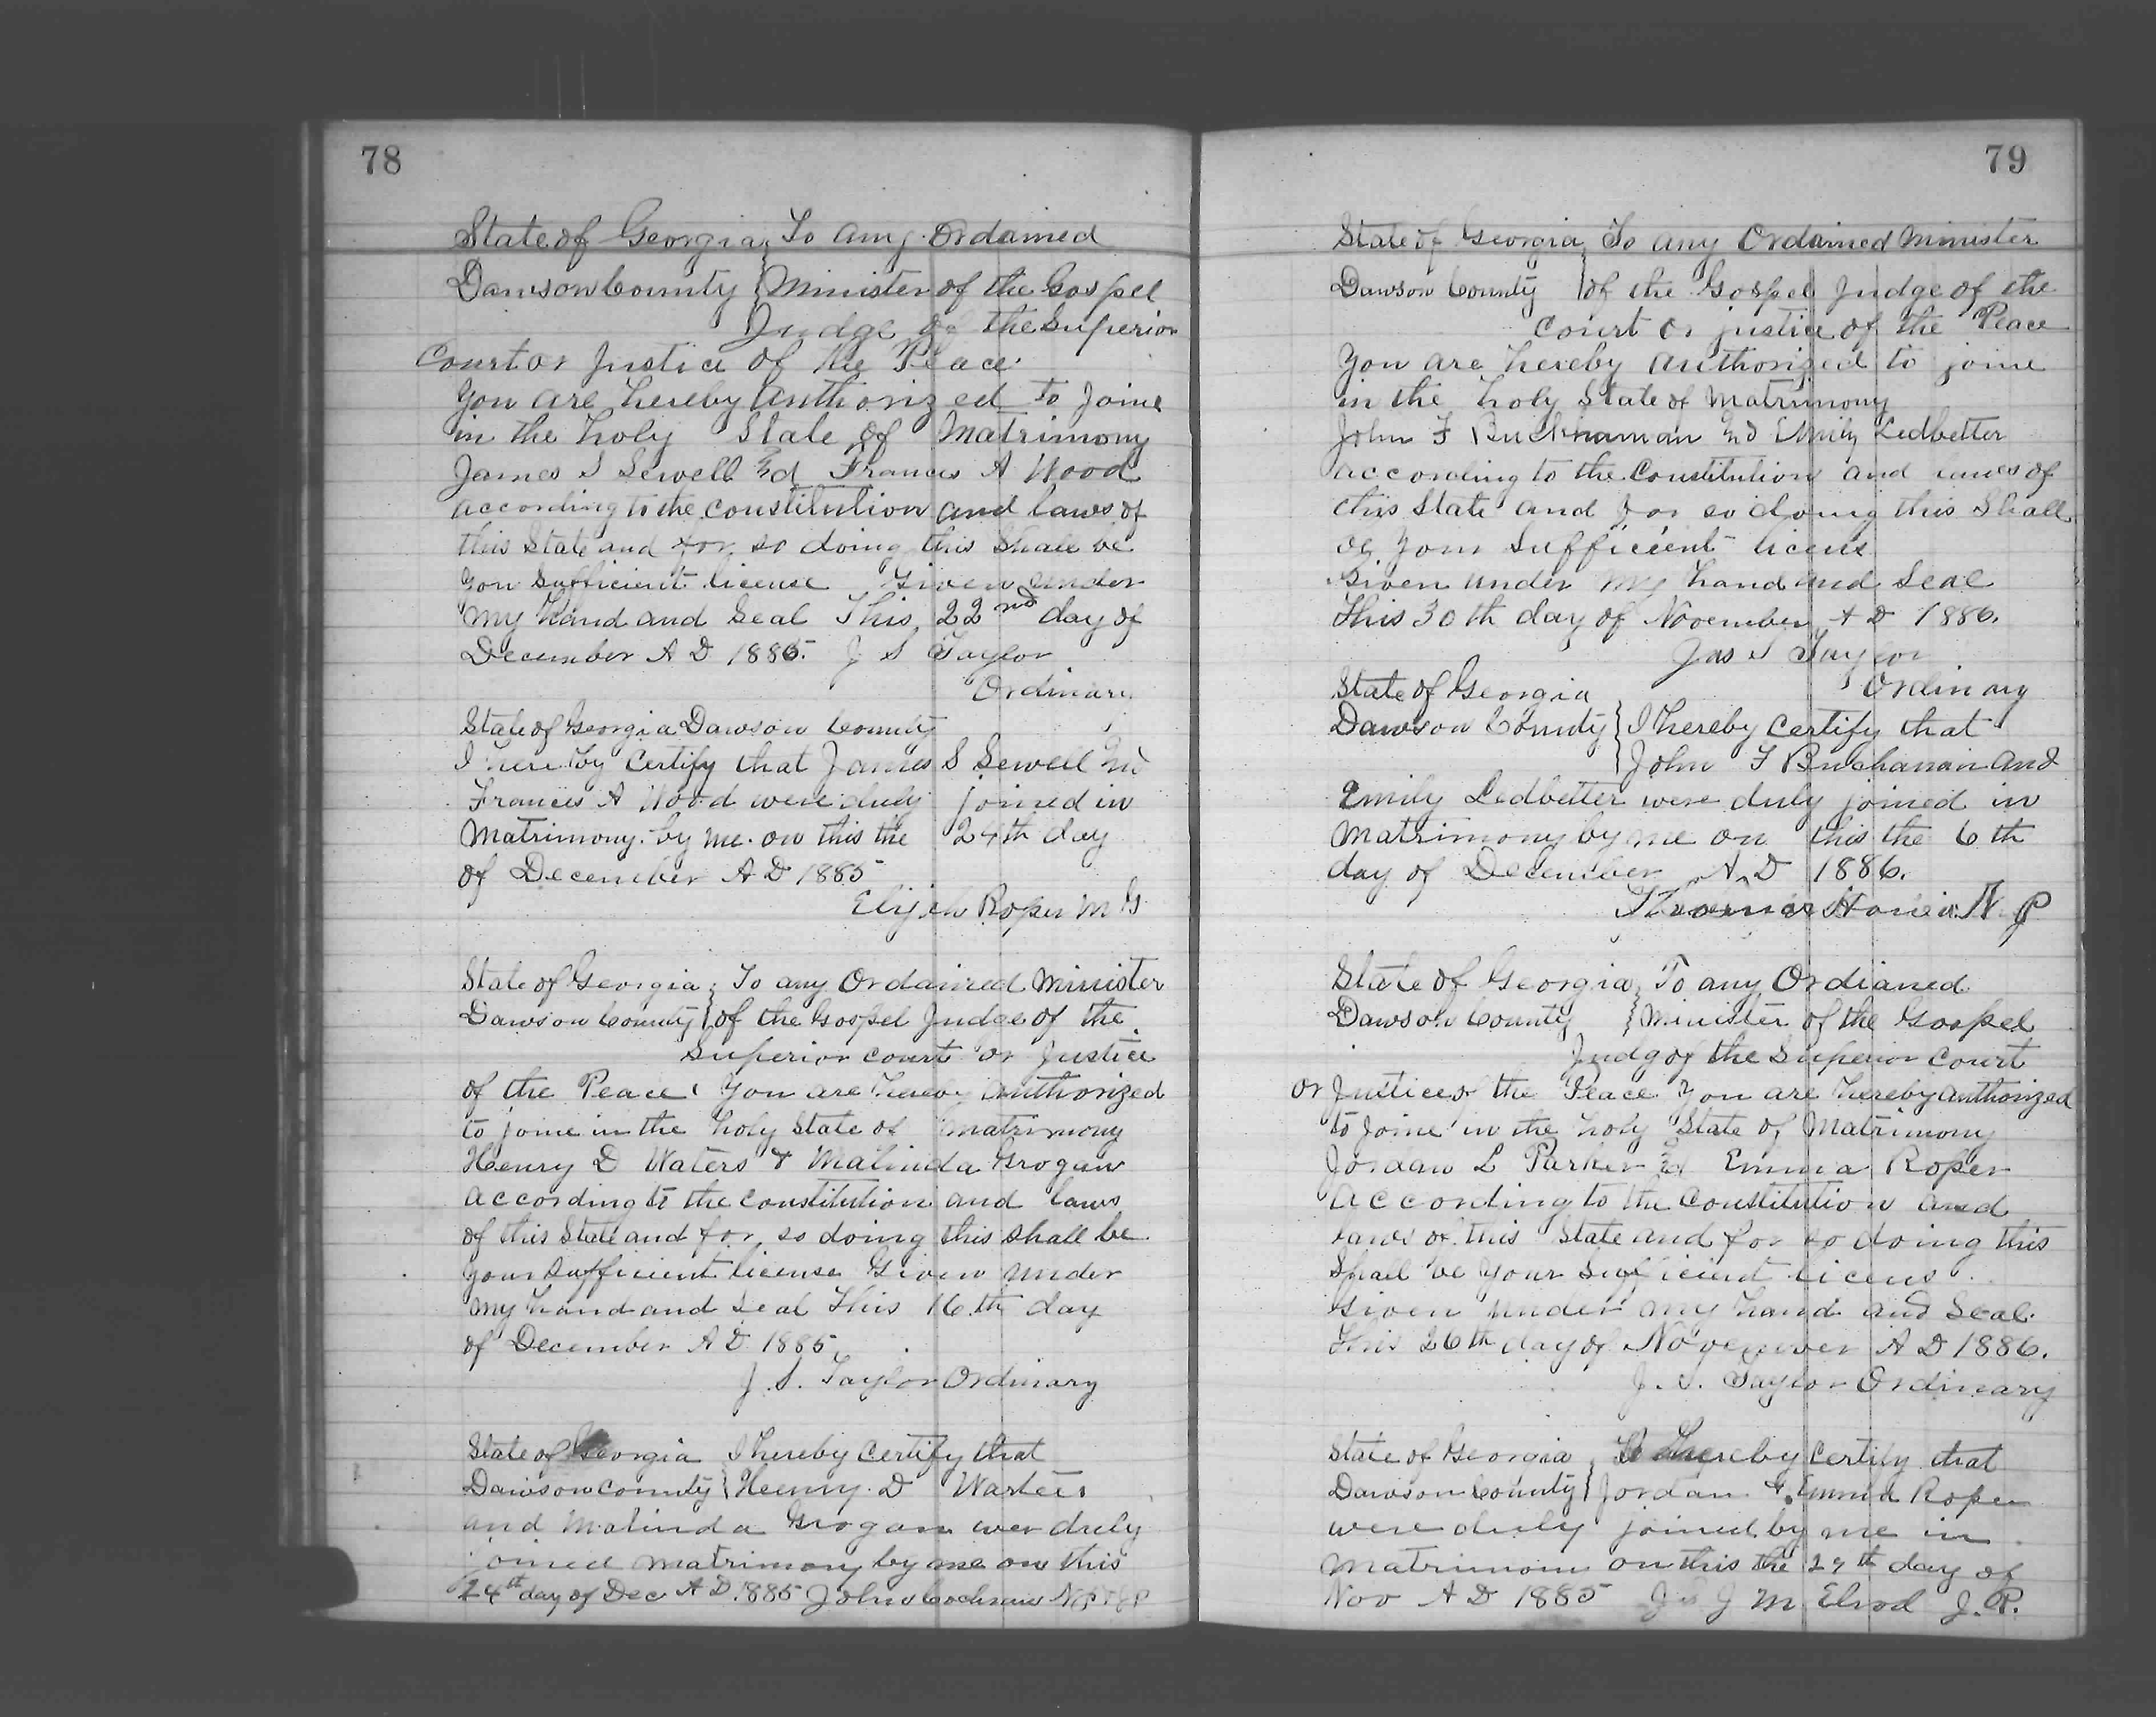 78
State of Georgia } To any Ordained
Dawson County } Minister of the Gospel
Judge of the Superior
Court or Justice of the Peace
You are hereby authorized to joine
in the holy State of Matrimony
James S Sewell and Frances A Wood
according to the constitution and laws of
this State and for so doing this Shall be
you Sufficient license Given under
my hand and Seal This 22nd day of
December A D 1885. J S Taylor
Ordinary
State of Georgia Dawson County
I hereby Certify that James S Sewell and
Frances A Wood were duly joined in
Matrimony by me on this the 24th day
of December A D 1885
Elijah Roper M G
State of Georgia } To any Ordained Minister
Dawson County } of the Gospel Judge of the
Superior court or Justice
of the Peace You are hereby authorized
to joine in the holy State of matrimony
Henry D Waters & Malinda Grogan
according to the constitution and laws
of this State and for so doing this shall be
your Sufficient license Given under
my hand and Seal this 16th day
of December A D 1885
J. S. Taylor Ordinary
State of Georgia } I hereby Certify that
Dawson County } Heenry D Warters
and Malinda Grogan wer duly
joined matrimony by me on this
24th day of Dec A D. 1885 John Cochran
79
State of Georgia } To any Ordained Minister
Dawson County } of the Gospel Judge of the
court or justice of the Peace
You are hereby authorized to joine
in the holy State of Matrimony
John F Bucknaman and Emily Ledbetter
according to the Constitution and laws of
this State and for so doing this Shall
be your Sufficient licens
Given under my hand and Seal
This 30th day of November A D 1886.
Jas S Taylor
Ordinary
State of Georgia
Dawson County } I hereby certify that
John F Buchanan and
Emily Ledbetter were duly joined in
Matrimony by me on this the 6th
day of December A D 1886.
N P
State of Georgia } To any Ordianed
Dawson County } Minister of the Gospel
Judg of the Superior Court
or Justice of the Peace You are hereby authorized
to Joine in the holy State of Matrimony
Jordan L Parker and Emma Roper
according to the Constitution and
laws of this State and for so doing this
Shall be your Sufficient licens
Given under my hand and Seal
This 26th day of November A D 1886.
J. S. Taylor Ordinary
State of Georgia } I hereby Certify that
Dawson County } Jordan & Emma Roper
were duly joined by me in
Matrimony on this the 29th day of
Nov A D 1885 J M Elrod J. P.